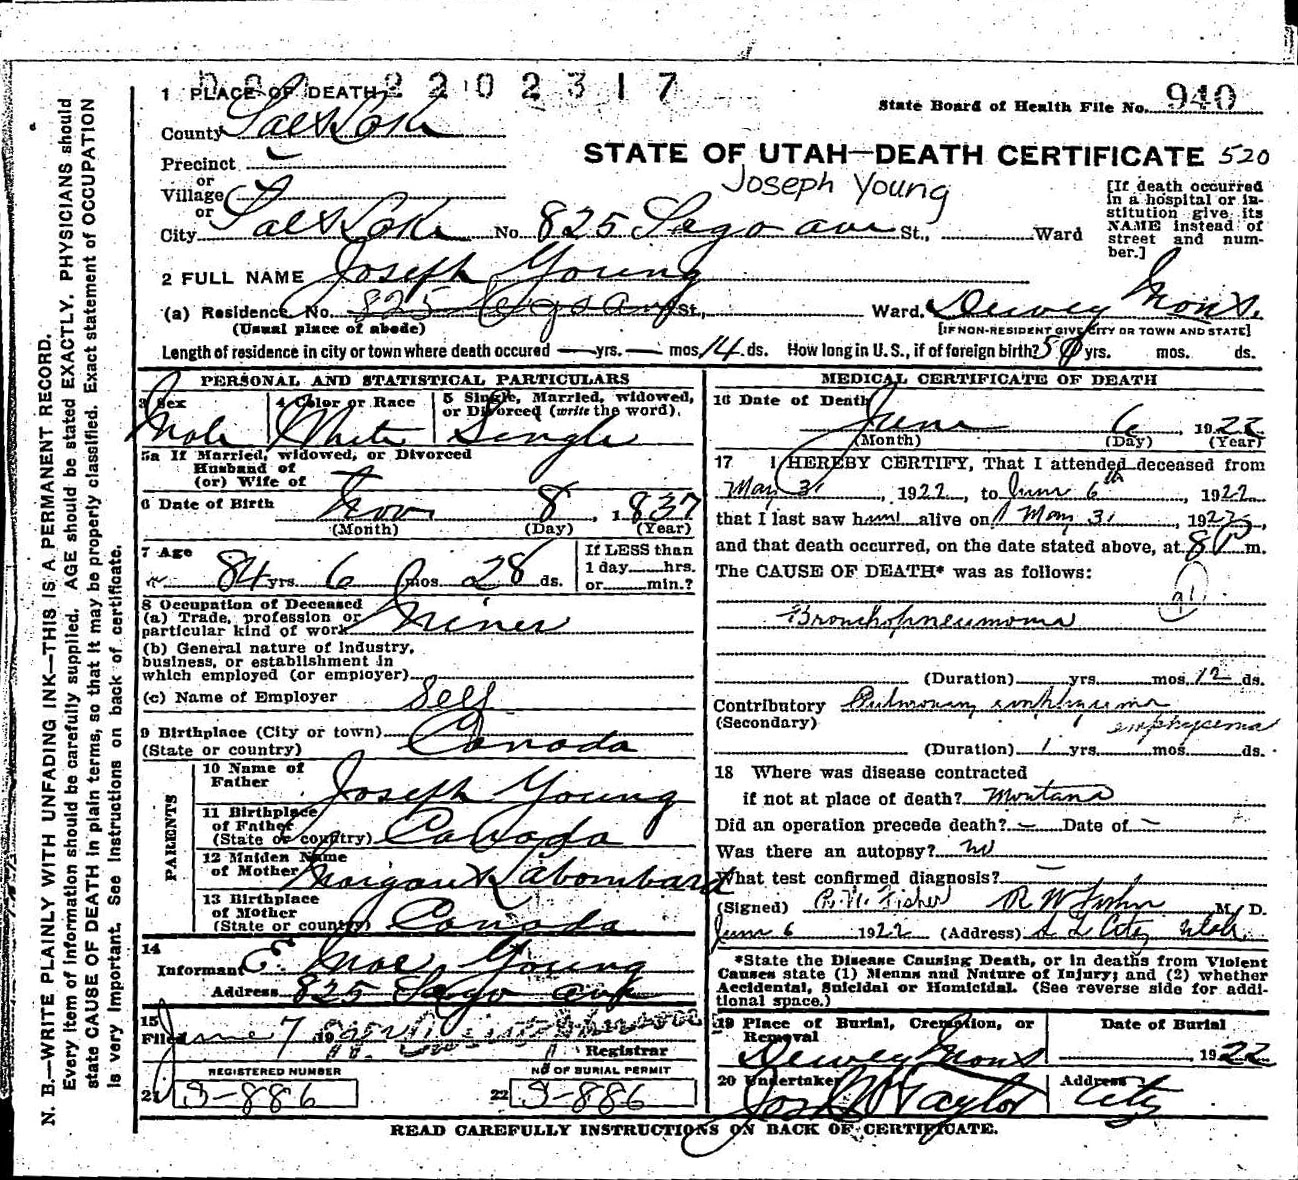 2202317
1 PLACE OF DEATH
State Board of Health File No. 940
County Salt Lake
STATE OF UTAH—DEATH CERTIFICATE 520
Precinct
or
Village
or
Joseph Young
[If death occurred in a hospital or institution give its NAME instead of street and number.]
City Salt Lake No. 825 Sego ave St., Ward
2 FULL NAME Joseph Young
(a) Residence No. 825 St., Ward. Dewey Mont.
(Usual place of abode) [IF NON-RESIDENT GIVE CITY OR TOWN AND STATE]
Length of residence in city or town where death occured — yrs. — mos 14 ds. How long in U.S., if of foreign birth? 50 yrs. mos. ds.
PERSONAL AND STATISTICAL PARTICULARS
3 Sex Male
4 Color or Race White
5 Single, Married, widowed, or Divorced (write the word). Single
5a If Married, widowed, or Divorced
Husband of
(or) Wife of
6 Date of Birth Nov 8, 1837
(Month) (Day) (Year)
7 Age 84 yrs. 6 mos. 28 ds.
If LESS than 1 day hrs. or min.?
8 Occupation of Deceased
(a) Trade, profession or
particular kind of work Miner
(b) General nature of industry,
business, or establishment in
which employed (or employer)
(c) Name of Employer Self
9 Birthplace (City or town)
(State or country) Canada
PARENTS
10 Name of Father Joseph Young
11 Birthplace of Father (State or country) Canada
12 Maiden Name of Mother Margaret Labombard
13 Birthplace of Mother (State or country) Canada
14
Informant E. Mae Young
Address 825 Sego ave
15
Filed June 7 19
Registrar
REGISTERED NUMBER
21 S-886
NO OF BURIAL PERMIT
22 S-886
MEDICAL CERTIFICATE OF DEATH
16 Date of Death June 6 1922
(Month) (Day) (Year)
17 I HEREBY CERTIFY, That I attended deceased from
May 31, 1922, to June 6th, 1922
that I last saw him alive on May 31, 1922,
and that death occurred, on the date stated above, at 8 P m.
The CAUSE OF DEATH* was as follows:
91
Bronchopneumonia
(Duration) yrs. mos. 12 ds.
Contributory Pulmonary emphysema
(Secondary) emphysema
(Duration) 1 yrs. mos. ds.
18 Where was disease contracted
if not at place of death? Montana
Did an operation precede death? — Date of —
Was there an autopsy? no
What test confirmed diagnosis? —
(Signed) R. W. Fisher R W Fisher M. D.
June 6 1922 (Address) S L City Utah
*State the Disease Causing Death, or in deaths from Violent
Causes state (1) Menns and Nature of Injury; and (2) whether
Accidental, Suicidal or Homicidal. (See reverse side for addi-
tional space.)
19 Place of Burial, Cremation, or Removal Dewey Mont
Date of Burial 1922
20 Undertaker Jos Wm Taylor
Address City
READ CAREFULLY INSTRUCTIONS ON BACK OF CERTIFICATE.
N. B.—WRITE PLAINLY WITH UNFADING INK—THIS IS A PERMANENT RECORD.
Every item of information should be carefully supplied. AGE should be stated EXACTLY. PHYSICIANS should
state CAUSE OF DEATH in plain terms, so that it may be properly classified. Exact statement of OCCUPATION
is very important. See Instructions on back of certificate.